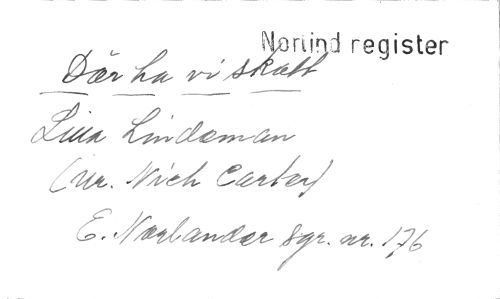 Norlind register
Där ha vi skatt
Lina Lindeman
(ur. Nick Carter)
E. Norlander sgr. nr. 176